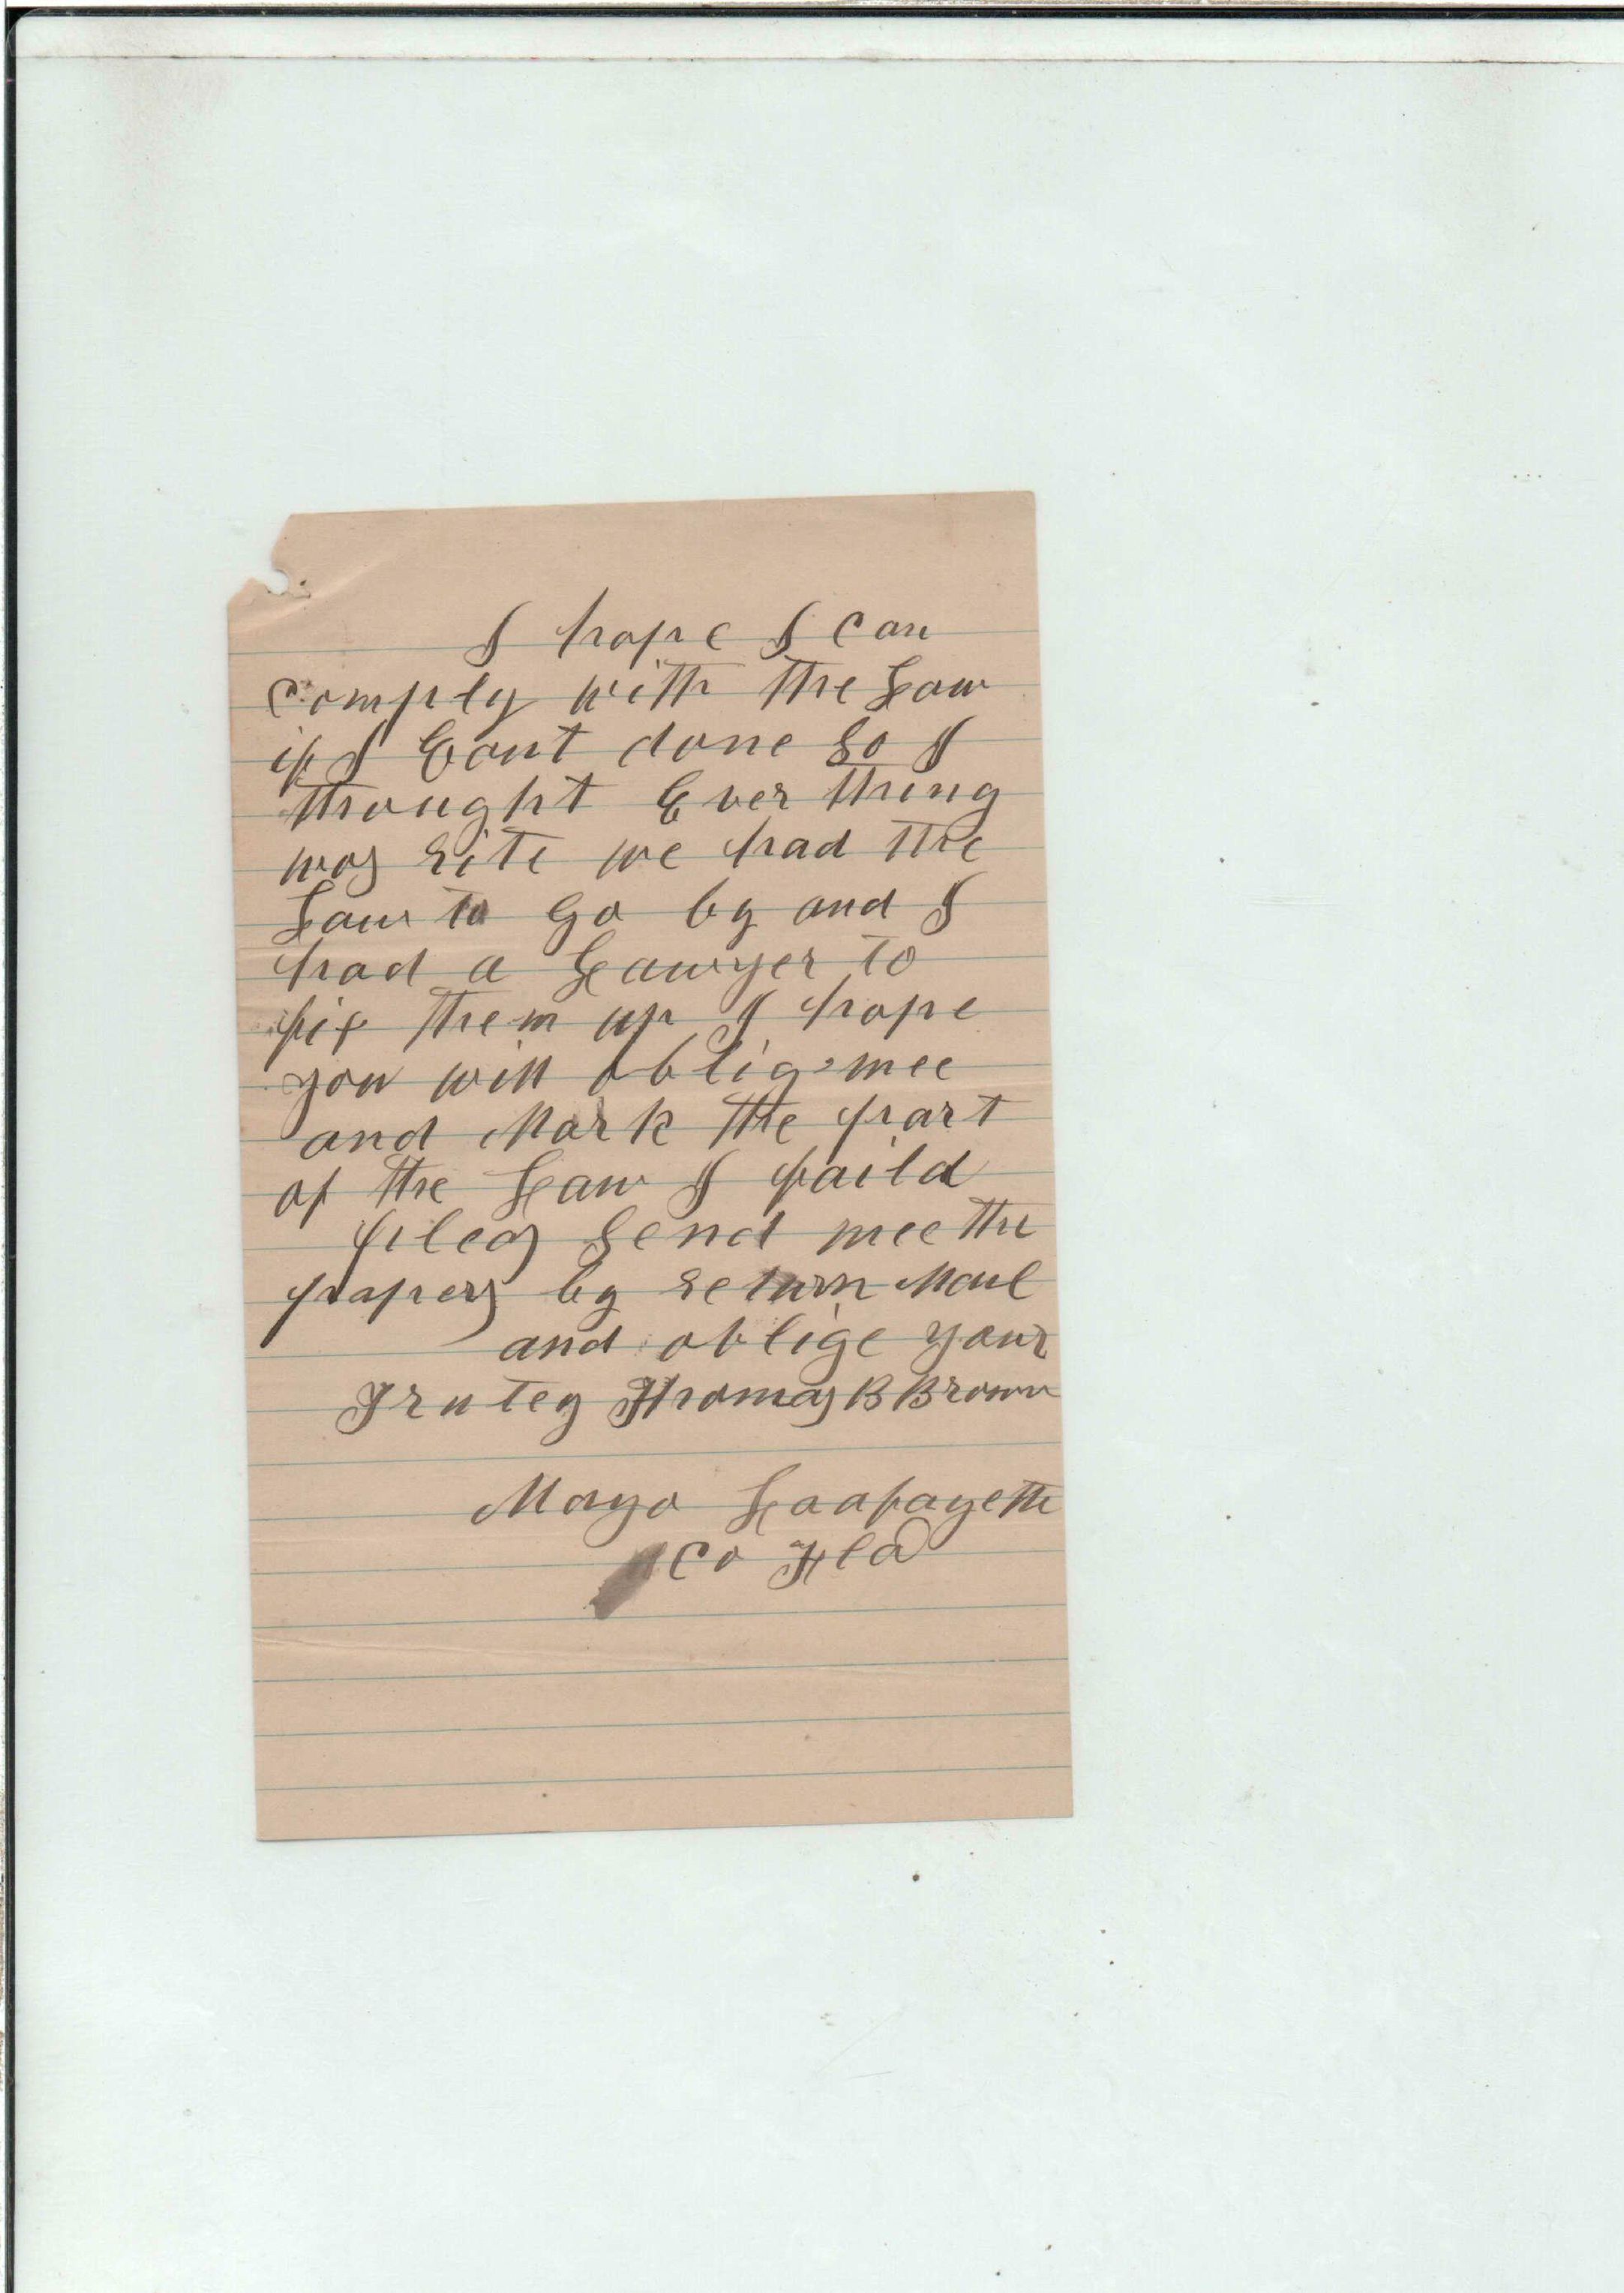 I hope I can
comply with the Law
if I Cant done So I
thought Ever thing
was rite we had the
Law to Go by and I
had a Lawyer to
fix them up I hope
you will oblig mee
and Mark the part
of the Law I faild
pleas Send mee the
papers by return Mail
and oblige your
Truley Thomas B Brown
Mayo Laafayette
Co Fla